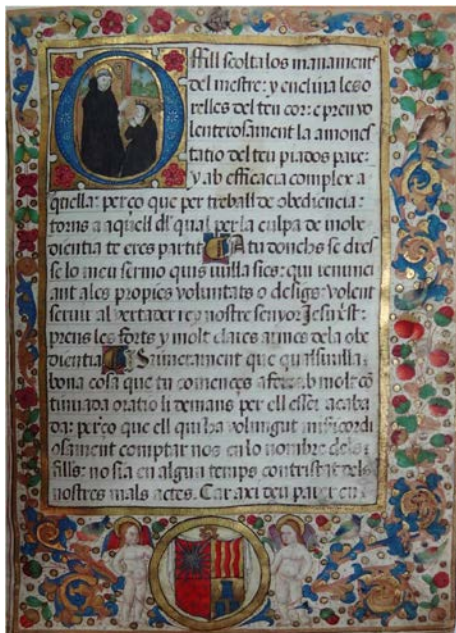 O ffill scolta los manaments
del mestre: y enclina les o
relles del teu cor: e pren vo
lenterosament la amones
tatio del teu piados pare:
y ab efficacia complex a
quella: perço que per treball de obediencia:
torns a aquell dl qual per la culpa de inobe
dientia te eres partit A tu donchs se dres
se lo meu sermo quis vulla sies: qui renunci
ant a les propies voluntats o desigs: volent
servir al vertader rey nostre senyor Jesucrist:
prens les forts y molt clares armes de la obe
dientia Primerament que qualsevulla
bona cosa que tu començes a fer: ab molt cō
tinuada oratio li demans per ell esser acaba
da: perço que ell qui ha volgut misericordi
osament comptar nos en lo nombre dels
fills: no sia en algun temps contristat dels
nostres mals actes. Car axi deu pare en